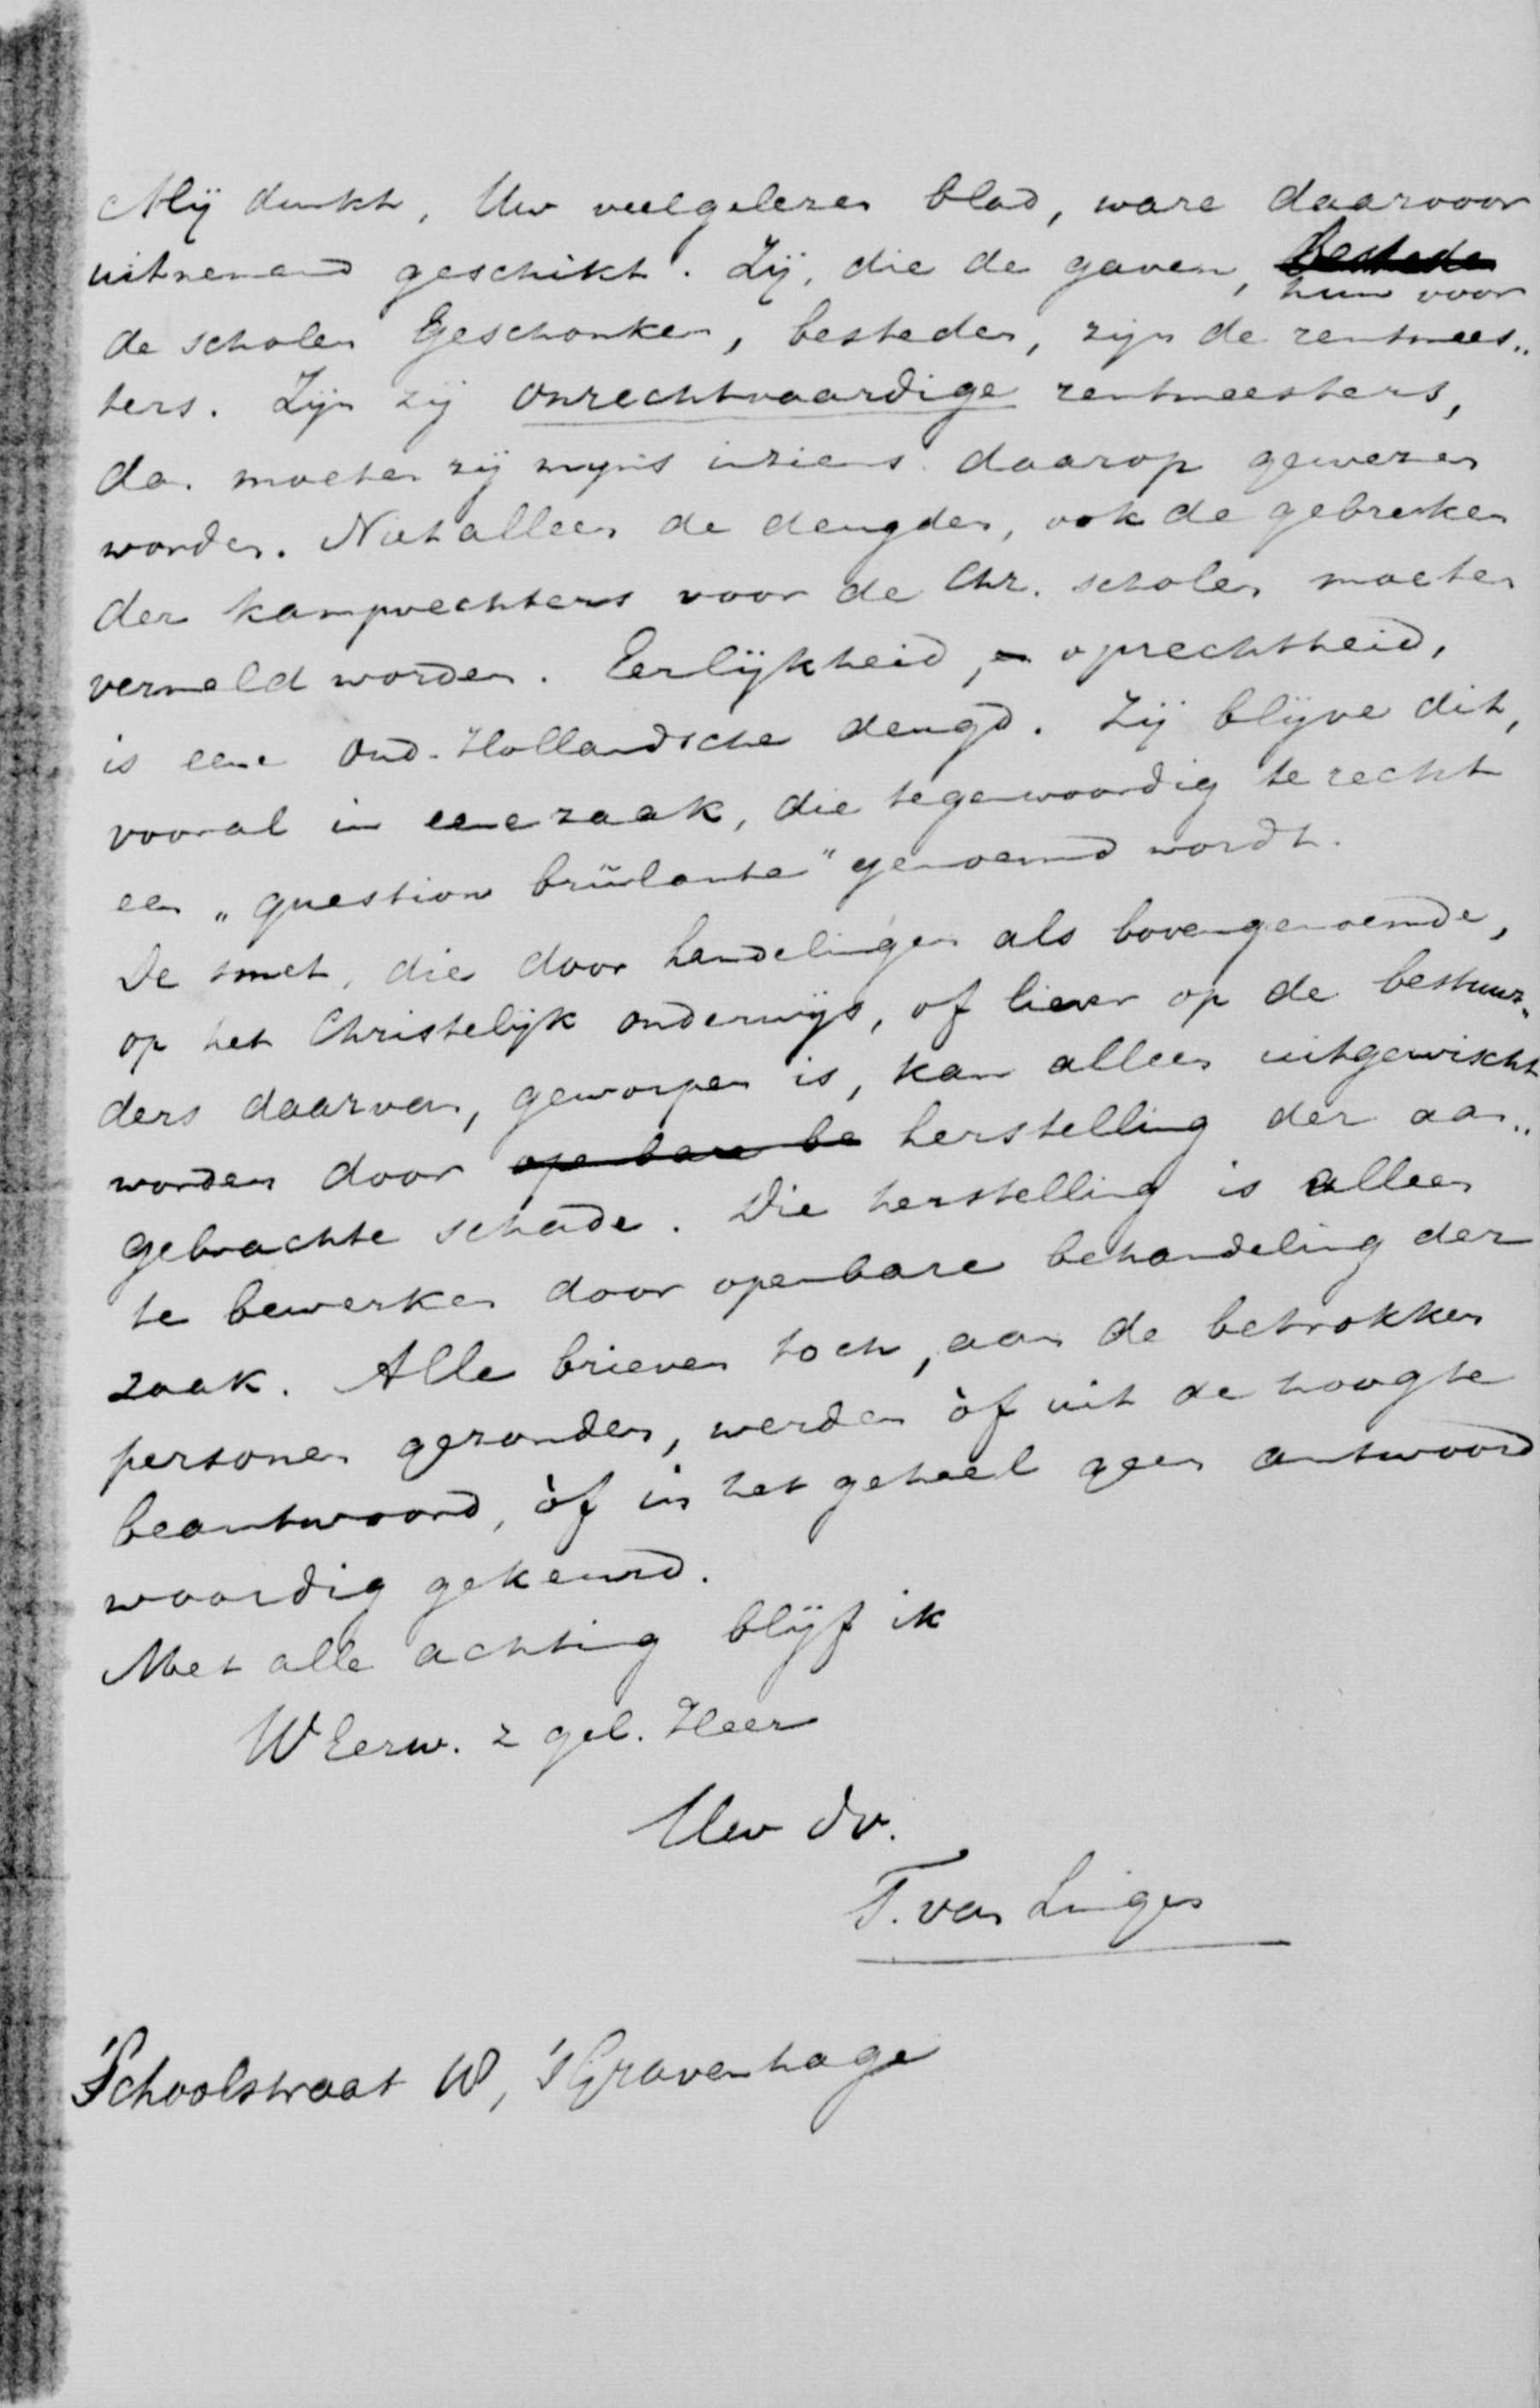 Mij dunkt, Uw veelgelezen blad, ware daarvoor
uitnemend geschikt. Zij, die de gaven, besteden hun voor
de scholen geschonken, besteden, zijn de rentmees„
ters. Zijn zij onrechtvaardige rentmeesters,
dan moeten zij mijns inziens daarop gewezen
worden. Niet alleen de deugden, ook de gebreken
der kampvechters voor de Chr. scholen moeten
vermeld worden. Eerlijkheid, oprechtheid,
is eene oud-Hollandsche deugd. Zij blijve dit,
vooral in eene zaak, die tegenwoordig te recht
een „question brûlante" genoemd wordt.
De smet, die door handelingen als bovengenoemde,
op het Christelijk onderwijs, of liever op de bestuur„
ders daarvan, geworpen is, kan alleen uitgewischt
worden door openbare be herstelling der aan„
gebrachte schade. Die herstelling is alleen
te bewerken door openbare behandeling der
zaak. Alle brieven toch, aan de betrokken
personen gezonden, werden òf uit de hoogte
beantwoord, òf in het geheel geen antwoord
waardig gekeurd.
Met alle achting blijf ik
WEerw. z gel. Heer
Uw dv.
T. van Lingen
Schoolstraat W, 'sGravenhage